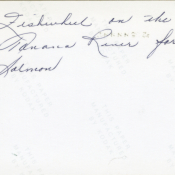 Fishwheel on the
Tanana River for
Salmon